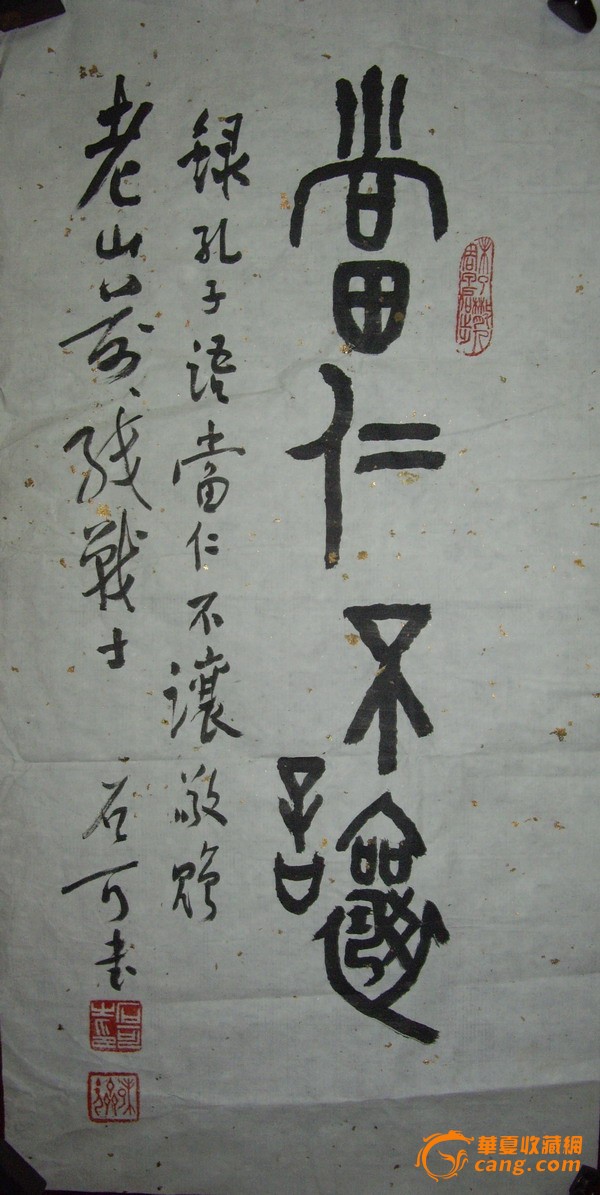 當仁不讓
錄孔子語當仁不讓敬贈
老山前線戰士
石可書
華夏收藏網
cang.com